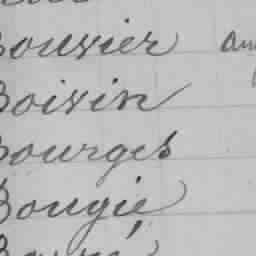 Bouvier
Boivin
Bourges
Bougie